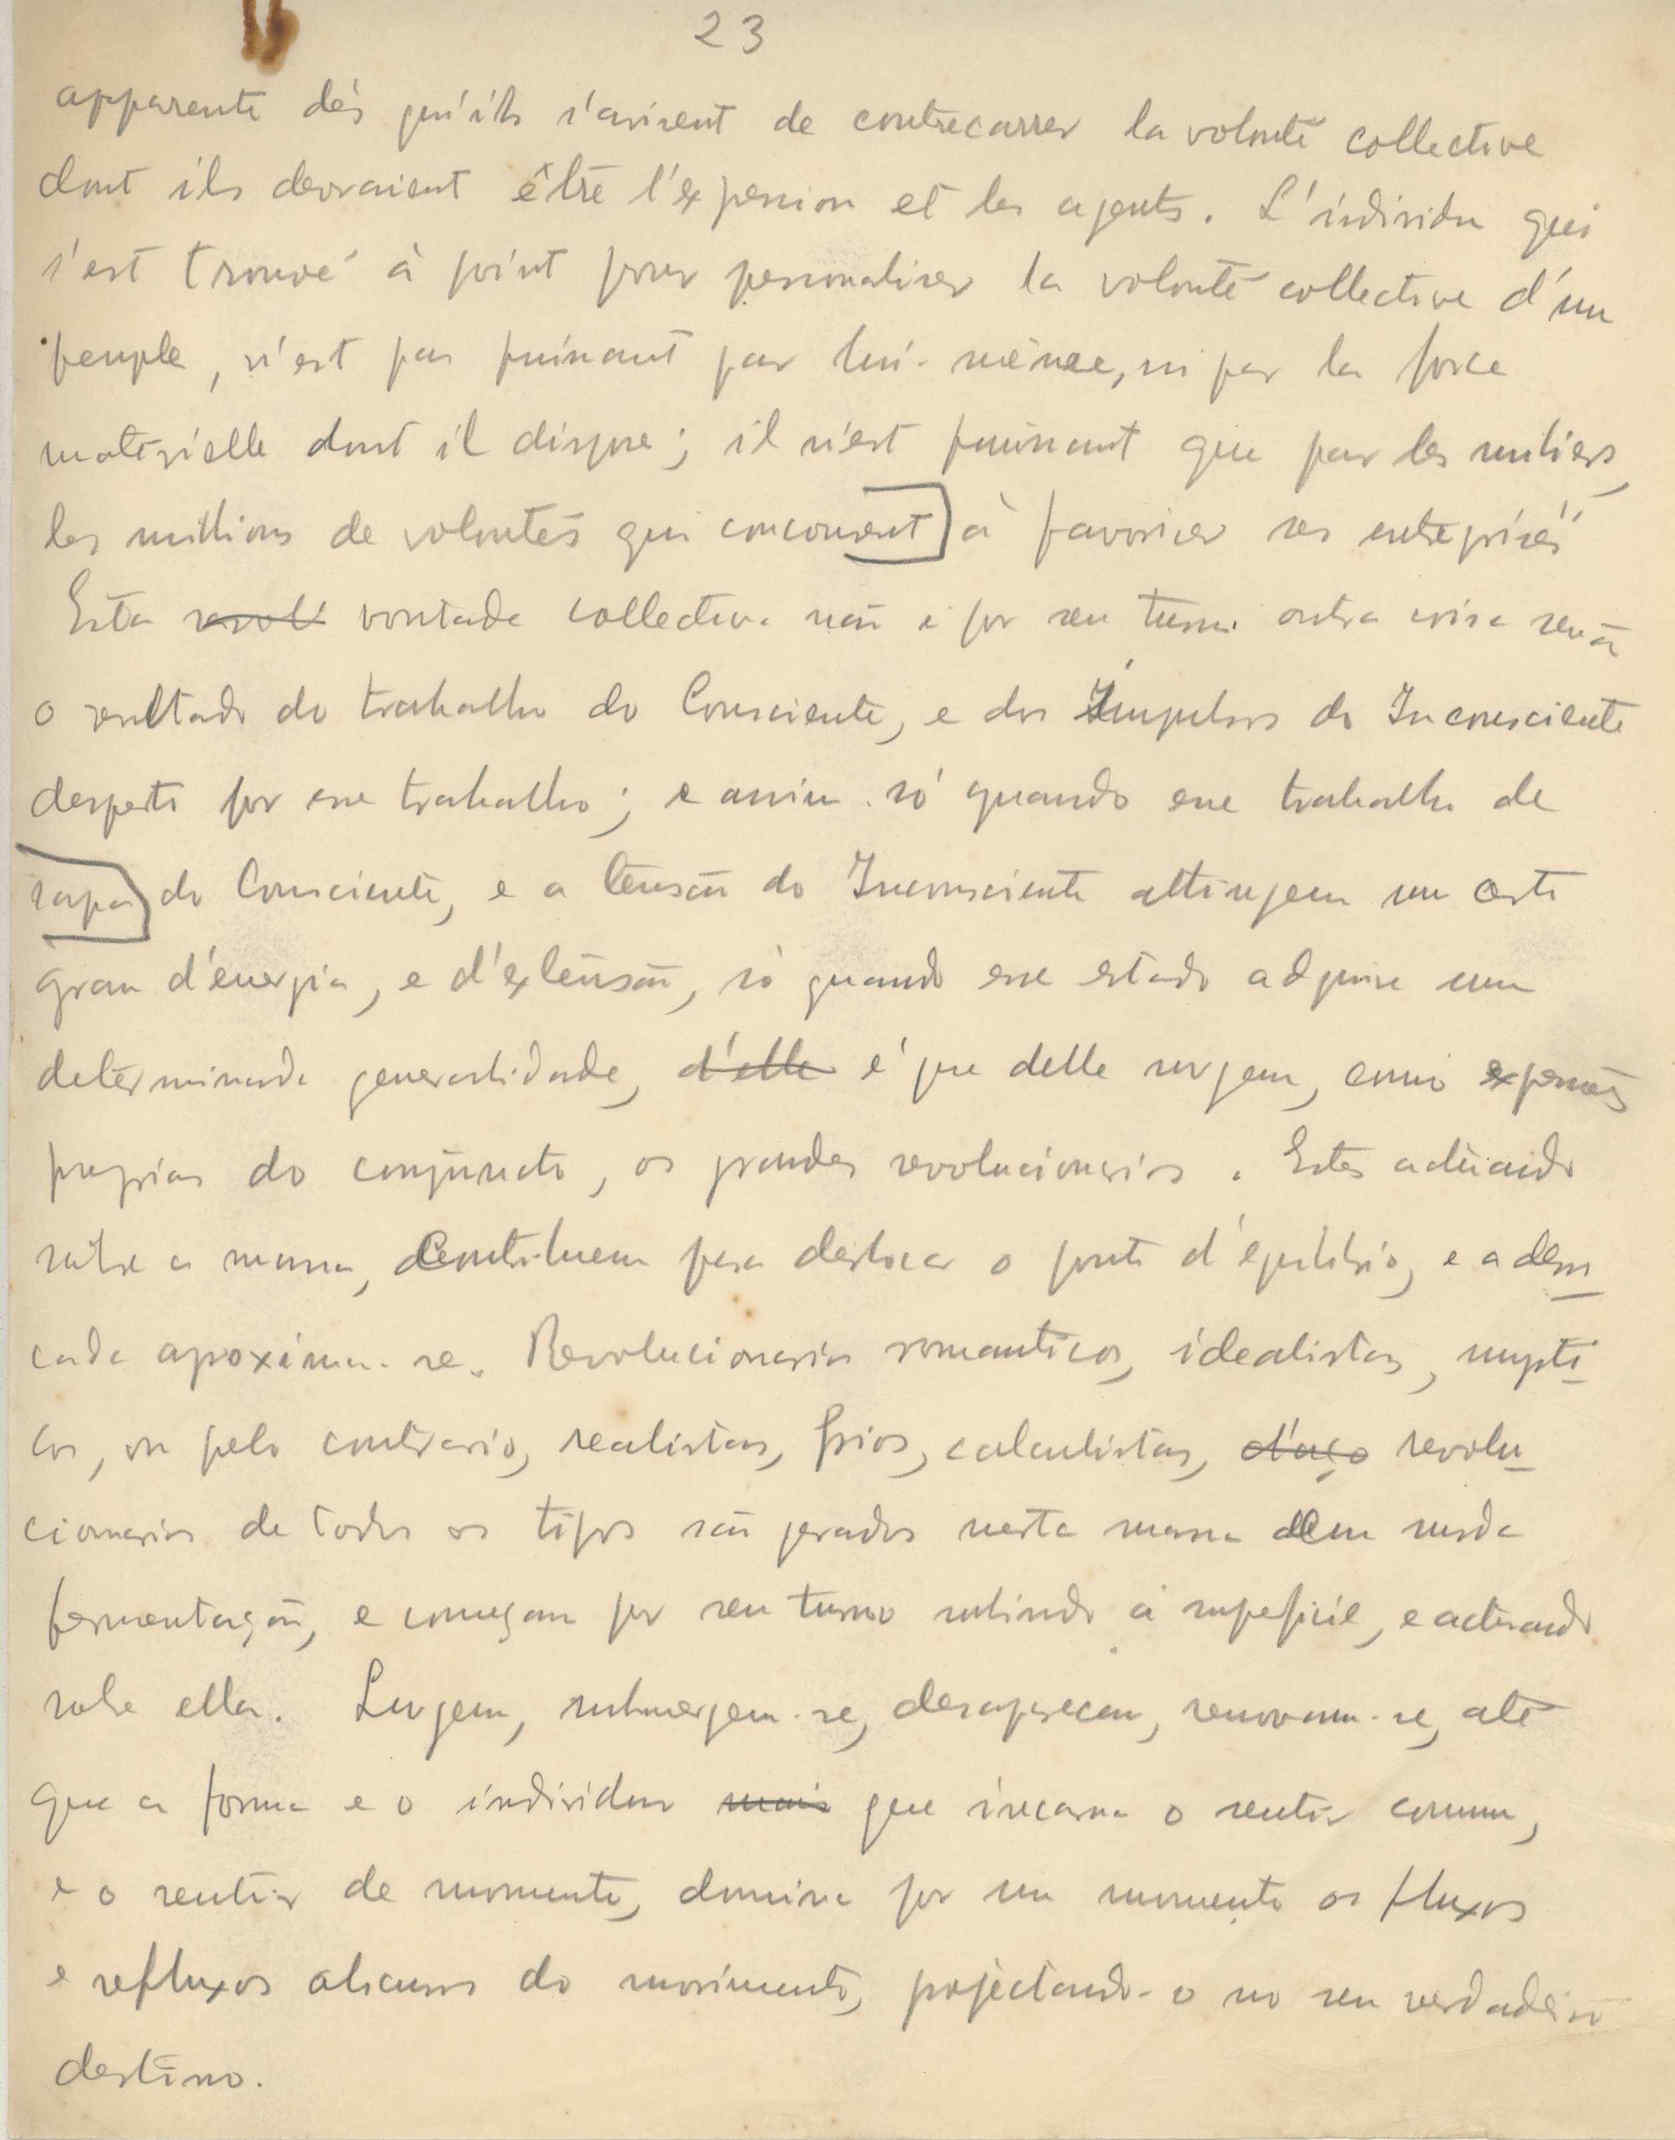 23
apparente dès qu'ils s'avisent de contrecarrer la volonté collective
dont ils devraient être l'expression et les agents. L'individu qui
s'est trouvé à point pour personnaliser la volonté collective d'un
peuple, n'est pas puissant par lui-même, ni par la force
matérielle dont il dispose; il n'est puissant que par les milliers,
les millions de volontés qui concourent à favoriser ses entreprises"
Esta vontade collectiva não é por seu turno outra coisa senão
o resultado do trabalho do Consciente, e dos Impulsos do Inconsciente
desperto por esse trabalho; e assim só quando esse trabalho de
sapa do Consciente, e a tensão do Inconsciente attingem um certo
grau d'energia, e d'extensão, só quando esse estado adquire uma
determinada generalidade, d'elle é que delle surgem, como expressões
proprias do conjuncto, os grandes revolucionarios. Estes actuando
sobre a massa, contribuem para deslocar o ponto d'equilibrio, e a dem
cada aproxima-se. Revolucionarios romanticos, idealistas, mysti-
cos, ou pelo contrario, realistas, frios, calculistas, d'aço revolu-
cionarios de todos os tipos são gerados nesta massa em
fermentação, e começam por seu turno subindo á superficie, e actuando
sobre ella. Surgem, submergem-se, desaparecem, renovam-se, até
que a forma e o individuo mais que incarna o sentir commum,
e o sentir de momento, domina por um momento os fluxos
e refluxos obscuros do movimento, projectando-o no seu verdadeiro
destino.